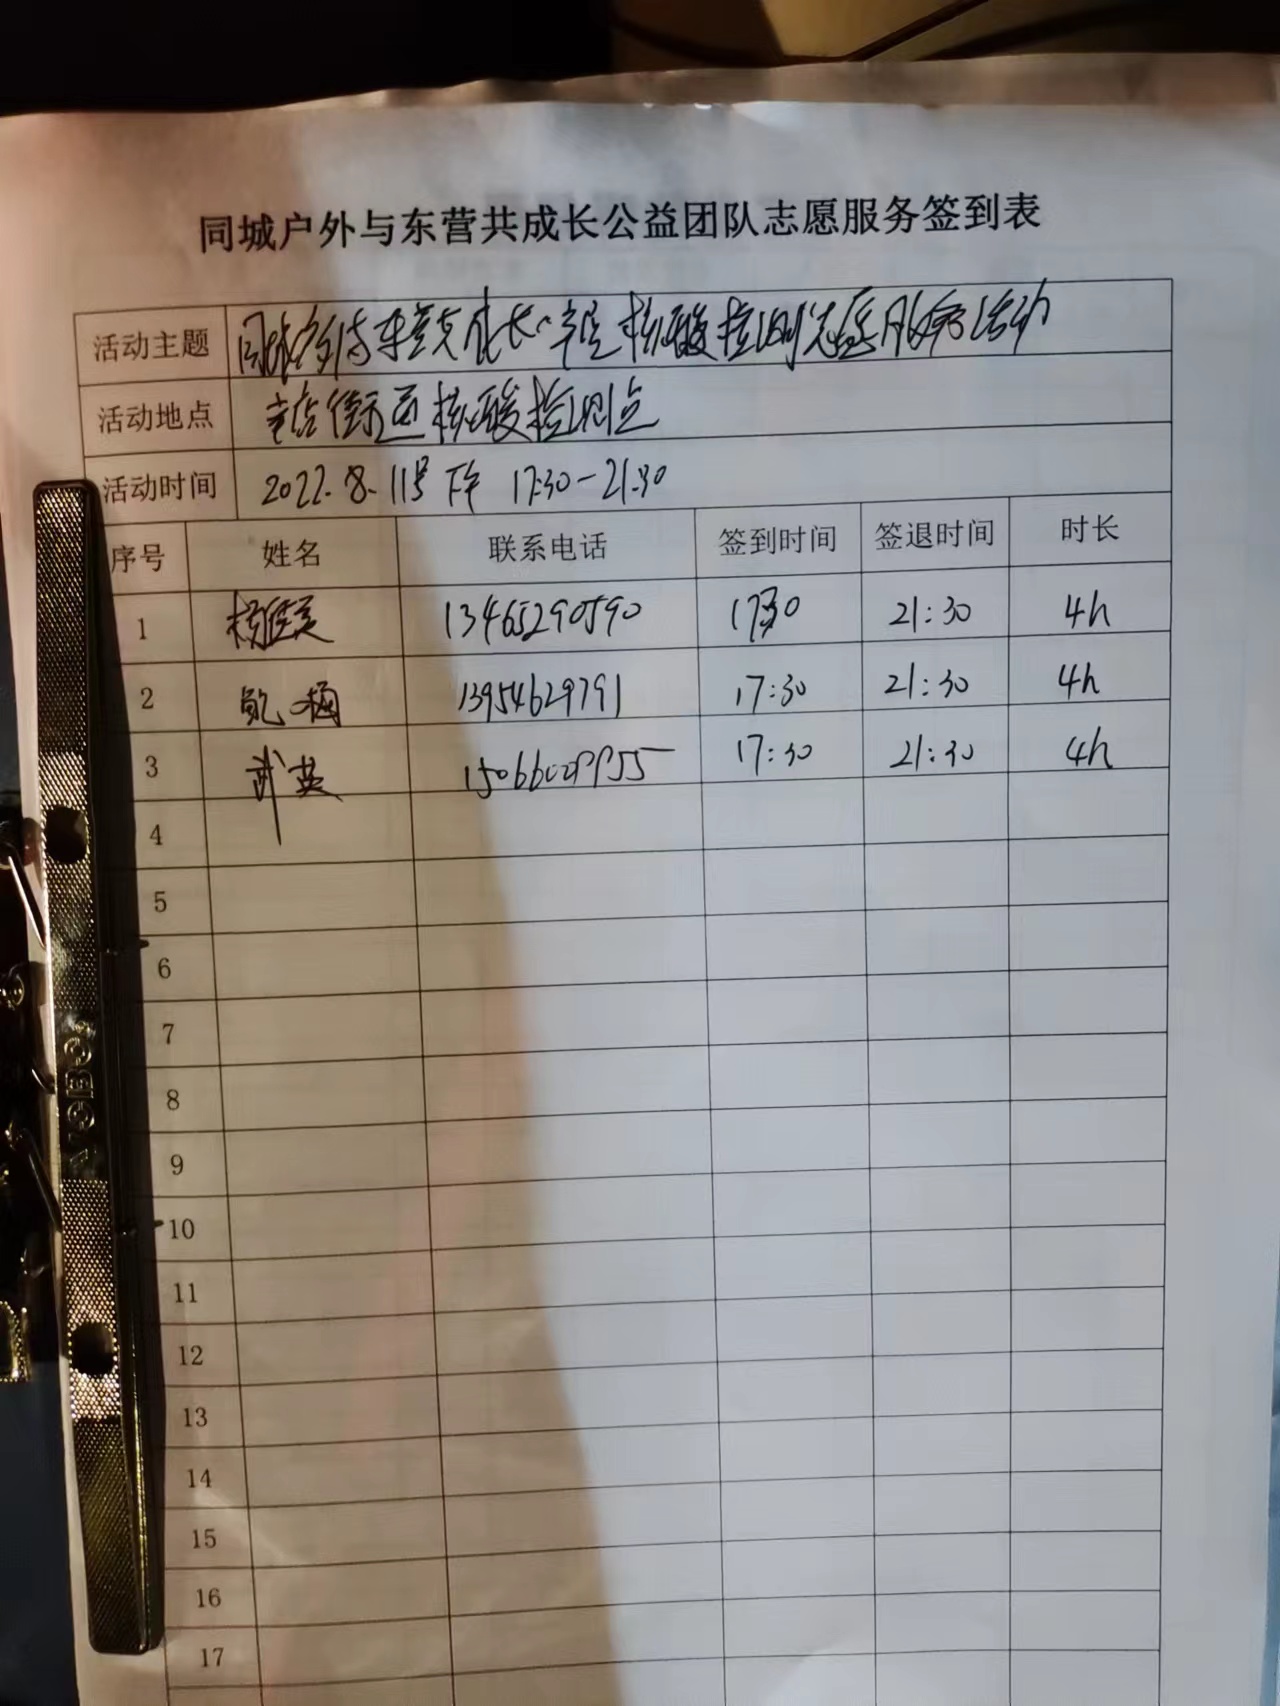 同城户外与东营共成长公益团队志愿服务签到表
活动主题 同城户外与东营共成长 核酸检测志愿服务活动
活动地点 街道核酸检测点
活动时间 2022.8.11号 下午 17:30-21:30
序号 姓名 联系电话 签到时间 签退时间 时长
1 13465290590 17:30 21:30 4h
2 鲍梅 13954629791 17:30 21:30 4h
3 武英 17:30 21:30 4h
4
5
6
7
8
9
10
11
12
13
14
15
16
17